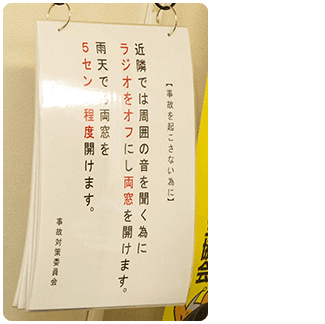 【事故を起こさない為に】
近隣では周囲の音を聞く為に
ラジオをオフにし両窓を開けます。
雨天でも両窓を
5センチ程度開けます。
事故対策委員会
協会